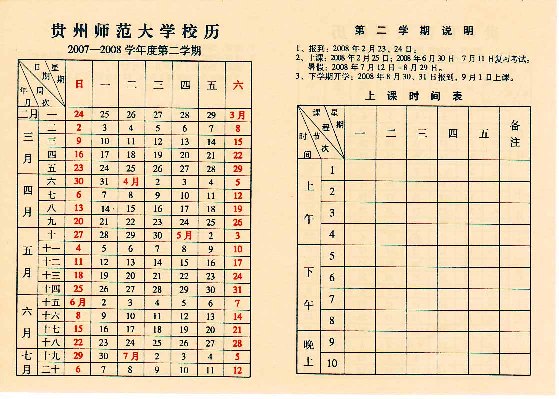 贵州师范大学校历
2007—2008 学年度第二学期
日 星
期 期
年 周
月 次
日 一 二 三 四 五 六
二月 一 24 25 26 27 28 29 3月
三月 二 2 3 4 5 6 7 8
三 9 10 11 12 13 14 15
四 16 17 18 19 20 21 22
五 23 24 25 26 27 28 29
四月 六 30 31 4月 2 3 4 5
七 6 7 8 9 10 11 12
八 13 14 15 16 17 18 19
九 20 21 22 23 24 25 26
五月 十 27 28 29 30 5月 2 3
十一 4 5 6 7 8 9 10
十二 11 12 13 14 15 16 17
十三 18 19 20 21 22 23 24
十四 25 26 27 28 29 30 31
六月 十五 6月 2 3 4 5 6 7
十六 8 9 10 11 12 13 14
十七 15 16 17 18 19 20 21
十八 22 23 24 25 26 27 28
七月 十九 29 30 7月 2 3 4 5
二十 6 7 8 9 10 11 12
第二学期说明
1、报到：2008年2月23、24日；
2、上课：2008年2月25日；2008年6月30日－7月11日复习考试。
暑假：2008年7月12日－8月29日。
3、下学期开学：2008年8月30、31日报到，9月1日上课。
上课时间表
课 星
程 期
时 节 次
间
一 二 三 四 五 备注
上午 1
2
3
4
下午 5
6
7
8
晚上 9
10